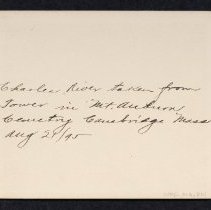 Charles River taken from
Tower in Mt. Auburn
Cemetery Cambridge Mass
Aug 29/95